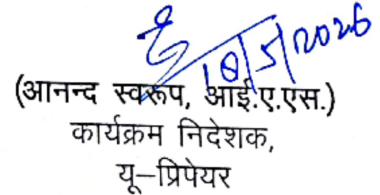 18/5/2026
(आनन्द स्वरूप, आई.ए.एस.)
कार्यक्रम निदेशक,
यू–प्रिपेयर